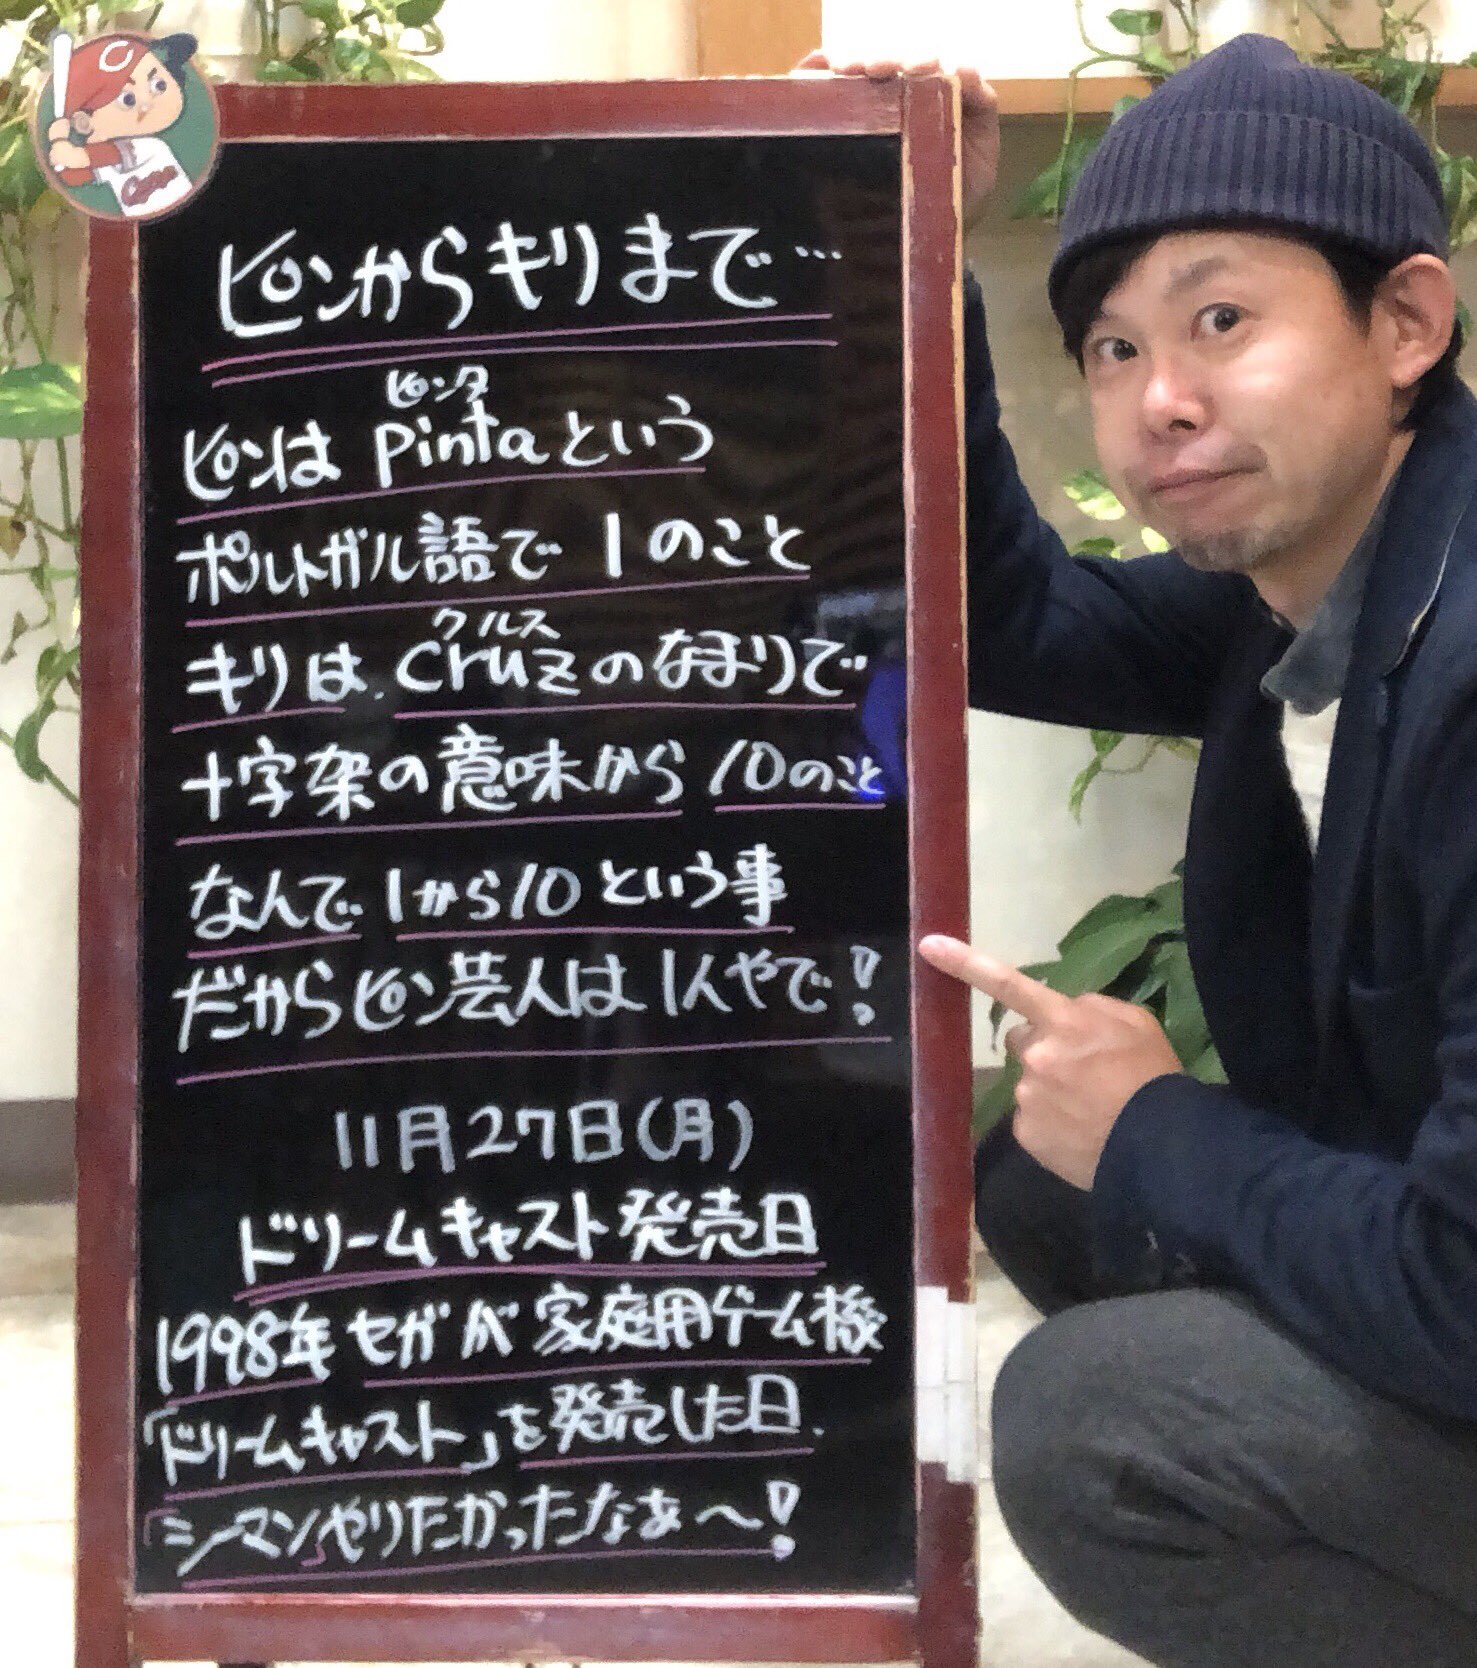 ピンからキリまで…
ピンタ
ピンは pintaという
ポルトガル語で 1のこと
クルス
キリは、cruzのなまりで
十字架の意味から10のこと
なんで1から10という事
だからピン芸人は1人やで!
11月27日(月)
ドリームキャスト発売日
1998年セガが家庭用ゲーム機
「ドリームキャスト」を発売した日.
「シーマン」やりたかったなぁ〜!
C
Carp